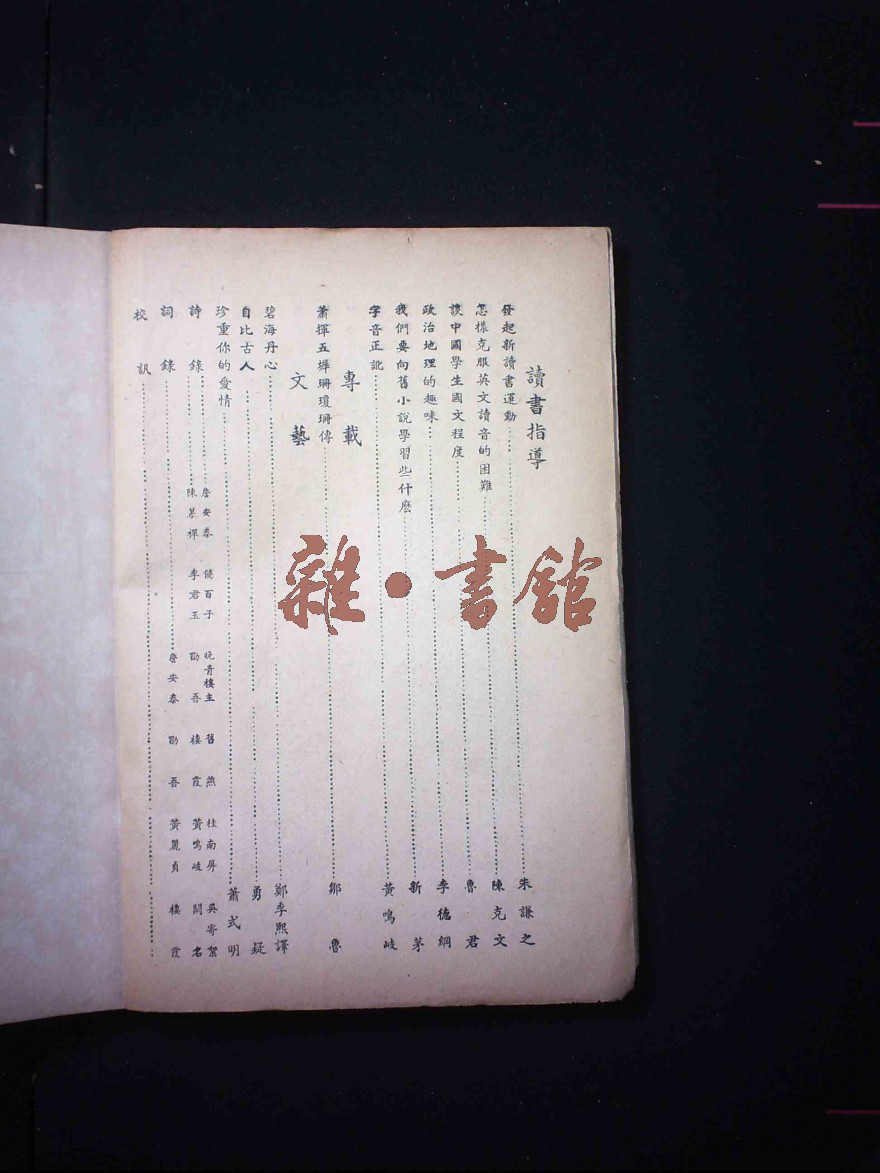 讀書指導
發起新讀書運動 朱謙之
怎樣克服英文讀音的困難 陳克文
談中國學生國文程度 魯君
政治地理的趣味 李德綱
我們要向舊小說學習些什麼 新茅
字音正訛 黃鳴岐
專載
蕭揮五墀珊瓊珊傳 鄒魯
文藝
碧海丹心 鄭季熙譯
自比古人 勇疑
珍重你的愛情 蕭式明
詩錄 詹安泰 饒百子 晚青樓主 舊燕 杜南屏 吳寄絜
陳慕禪 李君玉 勖吾 棲霞 黃鳴岐 闕名
詞錄 詹安泰 勖吾 黃麗貞 棲霞
校訊
雜·書館